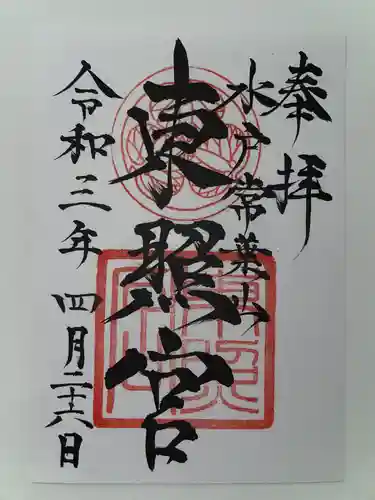 奉拝
水戸常葉山
東照宮
令和三年 四月二十六日